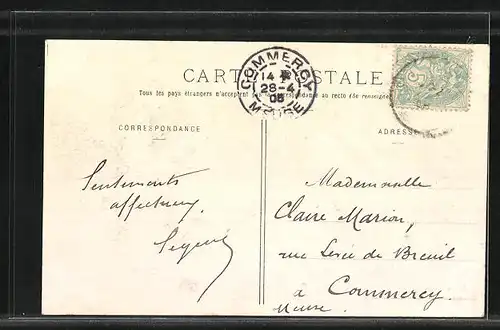 CARTE POSTALE
Tous les pays étrangers n'acceptent pas la correspondance au recto (Se renseigner
COMMERCY
14
28-4
MEUSE
5
CORRESPONDANCE
ADRESSE
Sentiments
affectueux.
Mademoiselle
Claire Marion,
rue de Breuil
à Commercy
Meuse